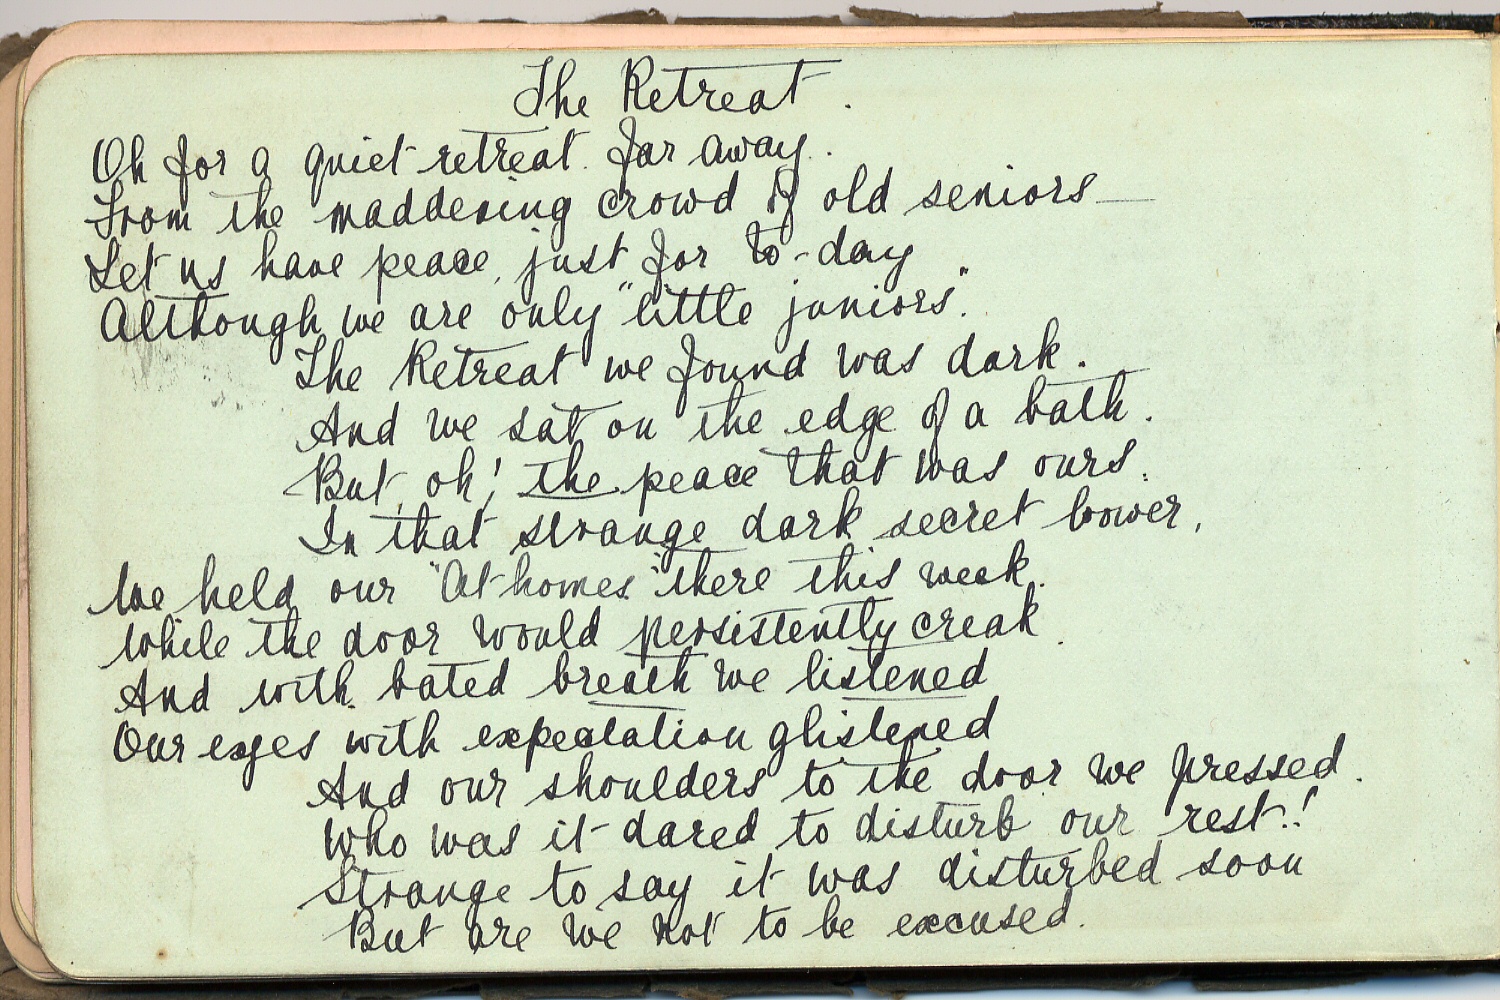 The Retreat.
Oh for a quiet retreat. far away.
From the maddening crowd of old seniors —
Let us have peace, just for to-day
Although we are only "little juniors".
The Retreat we found was dark.
And we sat on the edge of a bath.
But, oh! the peace that was ours.
In that strange dark secret bower,
We held our "At homes" there this week.
While the door would persistently creak.
And with bated breath we listened
Our eyes with expectation glistened
And our shoulders to the door we pressed.
Who was it dared to disturb our rest!
Strange to say it was disturbed soon
But are we not to be excused.